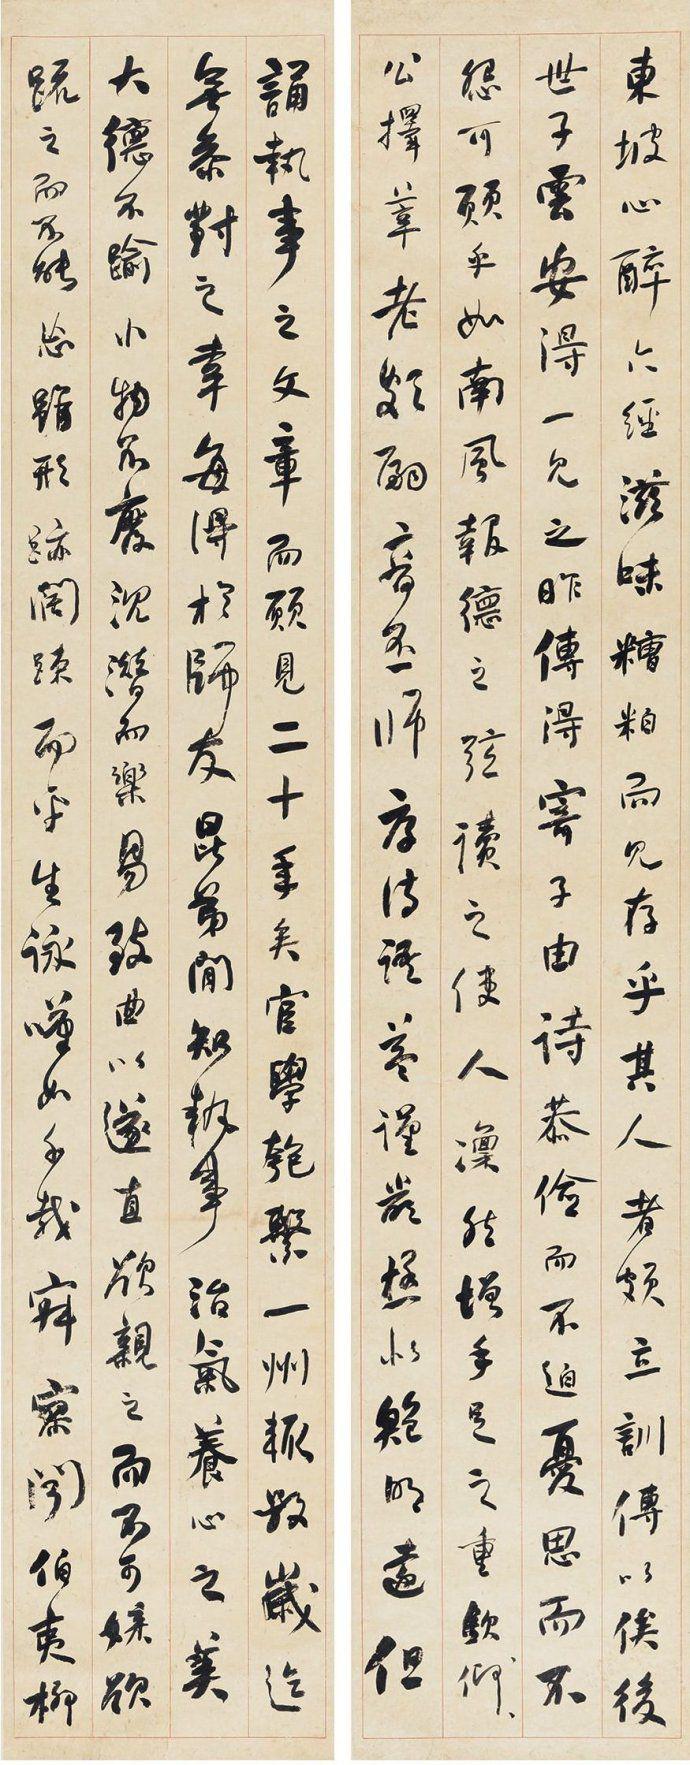 東坡心醉六經滋味糟粕而見存乎其人者頗立訓傳以俟後
世子雲安得一見之昨傳得寄子由詩恭儉而不迫憂思而不
怨可願乎如南風報德之弦讀之使人凜然增手足之重欽仰、
公擇莘老頗嗣音否師厚詩語益謹嚴極似鮑明遠但
誦執事之文章而願見二十年矣官學匏繫一州輒數歲迄
無參對之幸每得於師友昆弟間知執事治氣養心之美
大德不踰小物不廢沉潛而樂易致曲以遂直欲親之而不可媟欲
疏之而不能忘雖形跡闊疎而平生詠嘆如千載寂寥聞伯夷柳